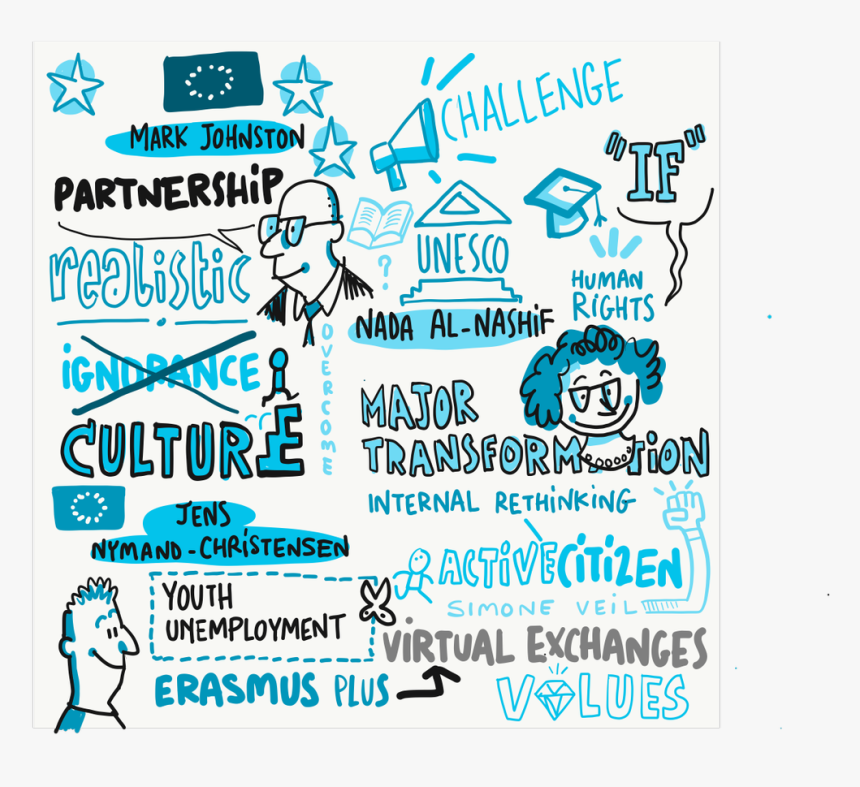 MARK JOHNSTON
PARTNERSHIP
realistic
iGNORANCE
CULTURE
OVERCOME
JENS
NYMAND-CHRISTENSEN
YOUTH
UNEMPLOYMENT
ERASMUS PLUS
CHALLENGE
"IF"
UNESCO
?
HUMAN
RiGHTS
NADA AL-NASHiF
MAJOR
TRANSFORMATiON
INTERNAL RETHiNKiNG
ACTiVE CiTiZEN
SIMONE VEIL
ViRTUAL EXCHANGES
VALUES